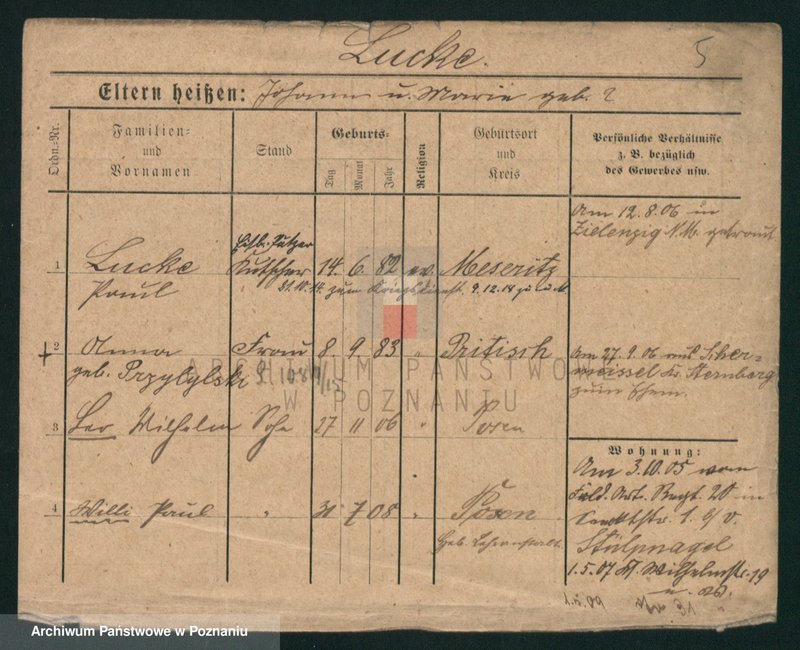 Lucke. 5
Eltern heißen: Johann u. Marie geb. ?
Ordn.-Nr. Familien- und Vornamen Stand Geburts- Tag Monat Jahr Religion Geburtsort und Kreis Persönliche Verhältnisse z. B. bezüglich des Gewerbes usw.
Am 12.8.06 in
Zielenzig N/M. getraut
1 Lucke Kutscher 14. 6. 82 ev. Meseritz
Paul 31.10.14. zum Kriegsdienst. 9.12.18 zu
2 Anna Frau 8. 9. 83 " Pritisch
geb. Przybylski
Am 27.9.06 aus Scher-
meissel Kr. Sternberg
zum Ehem.
3 Leo Wilhelm Sohn 27 11 06 " Posen
Wohnung:
Am 3.10.05 vom
Feld. Art. Regt. 20 in
1 b/v.
Stülpnagel
1.5.07 Wilhelmstr. 19
4 Willi Paul " 31 7 08 " Posen
Geb. Lehranstalt.
1.5.09
ARCHIWUM PAŃSTWOWE
W POZNANIU
Archiwum Państwowe w Poznaniu